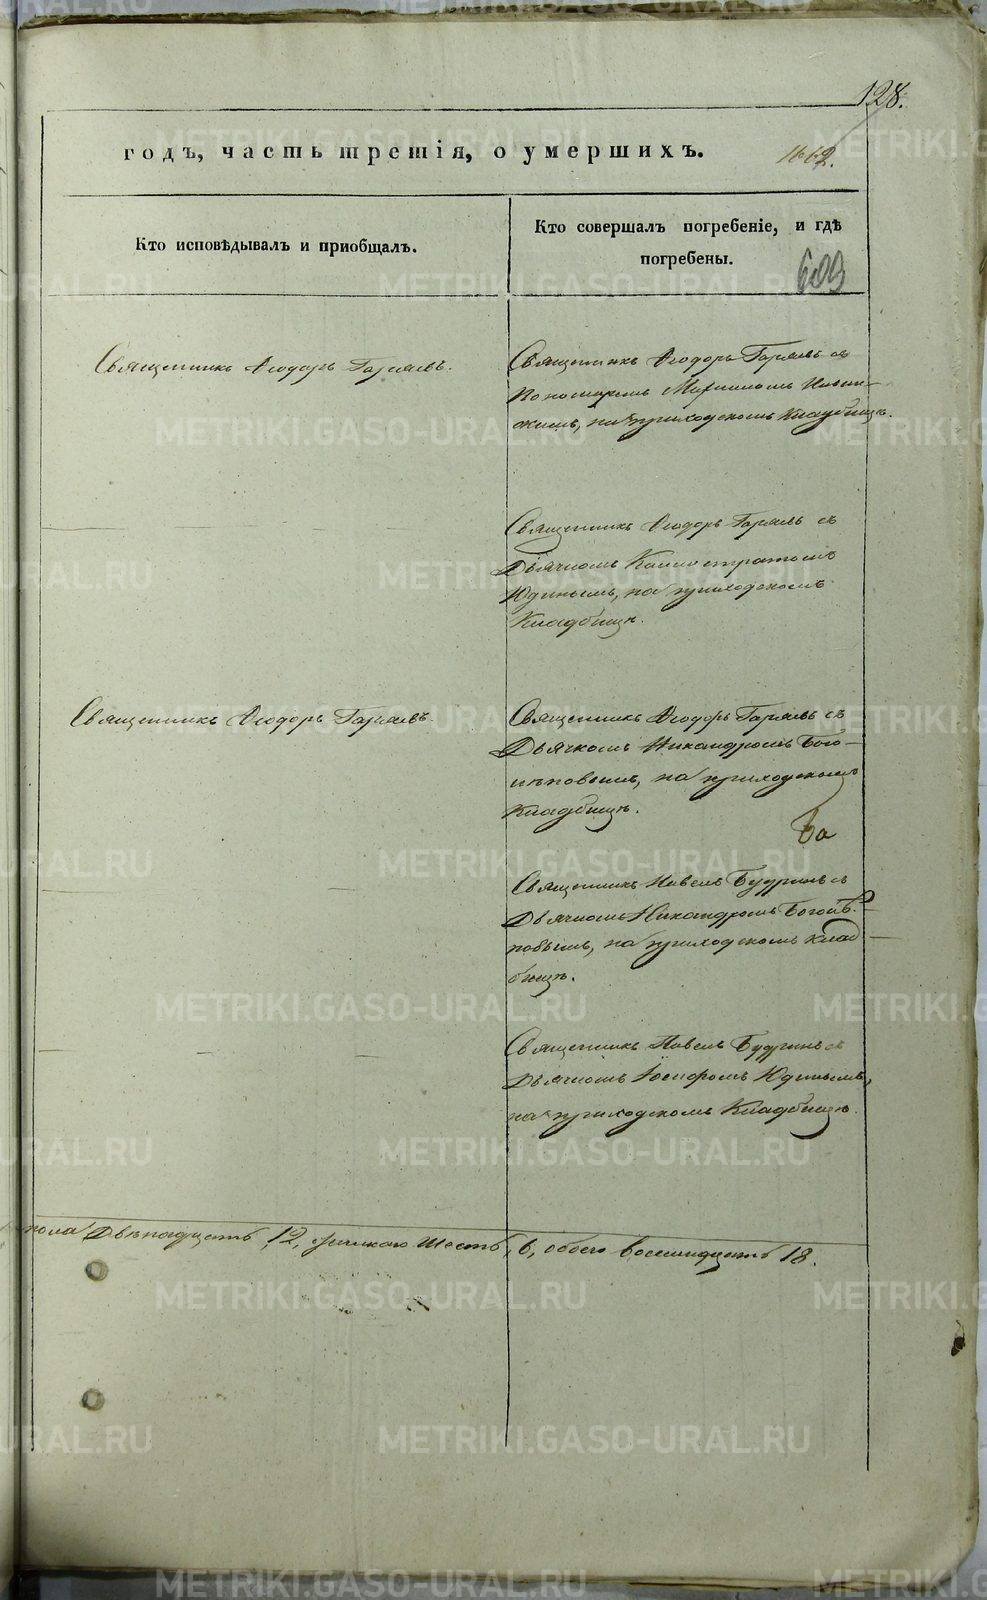 128.
годъ, часть третія, о умершихъ.
1662.
Кто исповѣдывалъ и приобщалъ.
Кто совершалъ погребеніе, и гдѣ
погребены.
609
Священникъ Ѳеодоръ Гаряевъ.
Священникъ Ѳеодоръ Гаряевъ съ
Пономаремъ
на приходскомъ Кладбищѣ.
Священникъ Ѳеодоръ Гаряевъ съ
Дьячкомъ Каллистратомъ
Юдинымъ, на приходскомъ
Кладбищѣ.
Священникъ Ѳеодоръ Гаряевъ
Священникъ Ѳеодоръ Гаряевъ съ
Дьячкомъ Никандромъ Бого-
лѣповымъ, на приходскомъ
Кладбищѣ.
Священникъ Павелъ Будринъ съ
Дьячкомъ Никандромъ Боголѣ-
повымъ, на приходскомъ клад
бищѣ.
Священникъ Павелъ Будринъ съ
Дьячкомъ Іосифомъ Юдинымъ,
на приходскомъ Кладбищѣ.
пола Двѣнадцать 12, женскаго шесть, 6, обоего восемнадцать 18.
METRIKI.GASO-URAL.RU